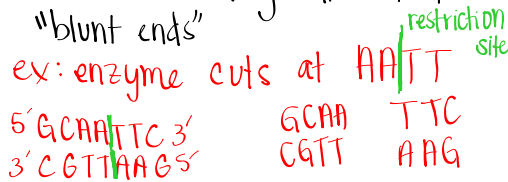 "blunt ends"
restriction site
ex: enzyme cuts at AATT
5' GCAATTC 3' GCAA TTC
3' CGTTAAG 5' CGTT AAG